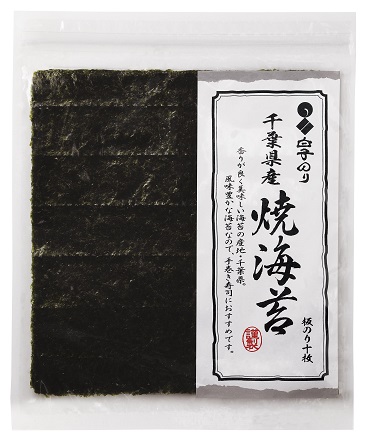 白子のり
千葉県産
焼海苔
香りが良く美味しい海苔の産地・千葉県。
風味豊かな海苔なので、手巻き寿司におすすめです。
謹製
板のり十枚